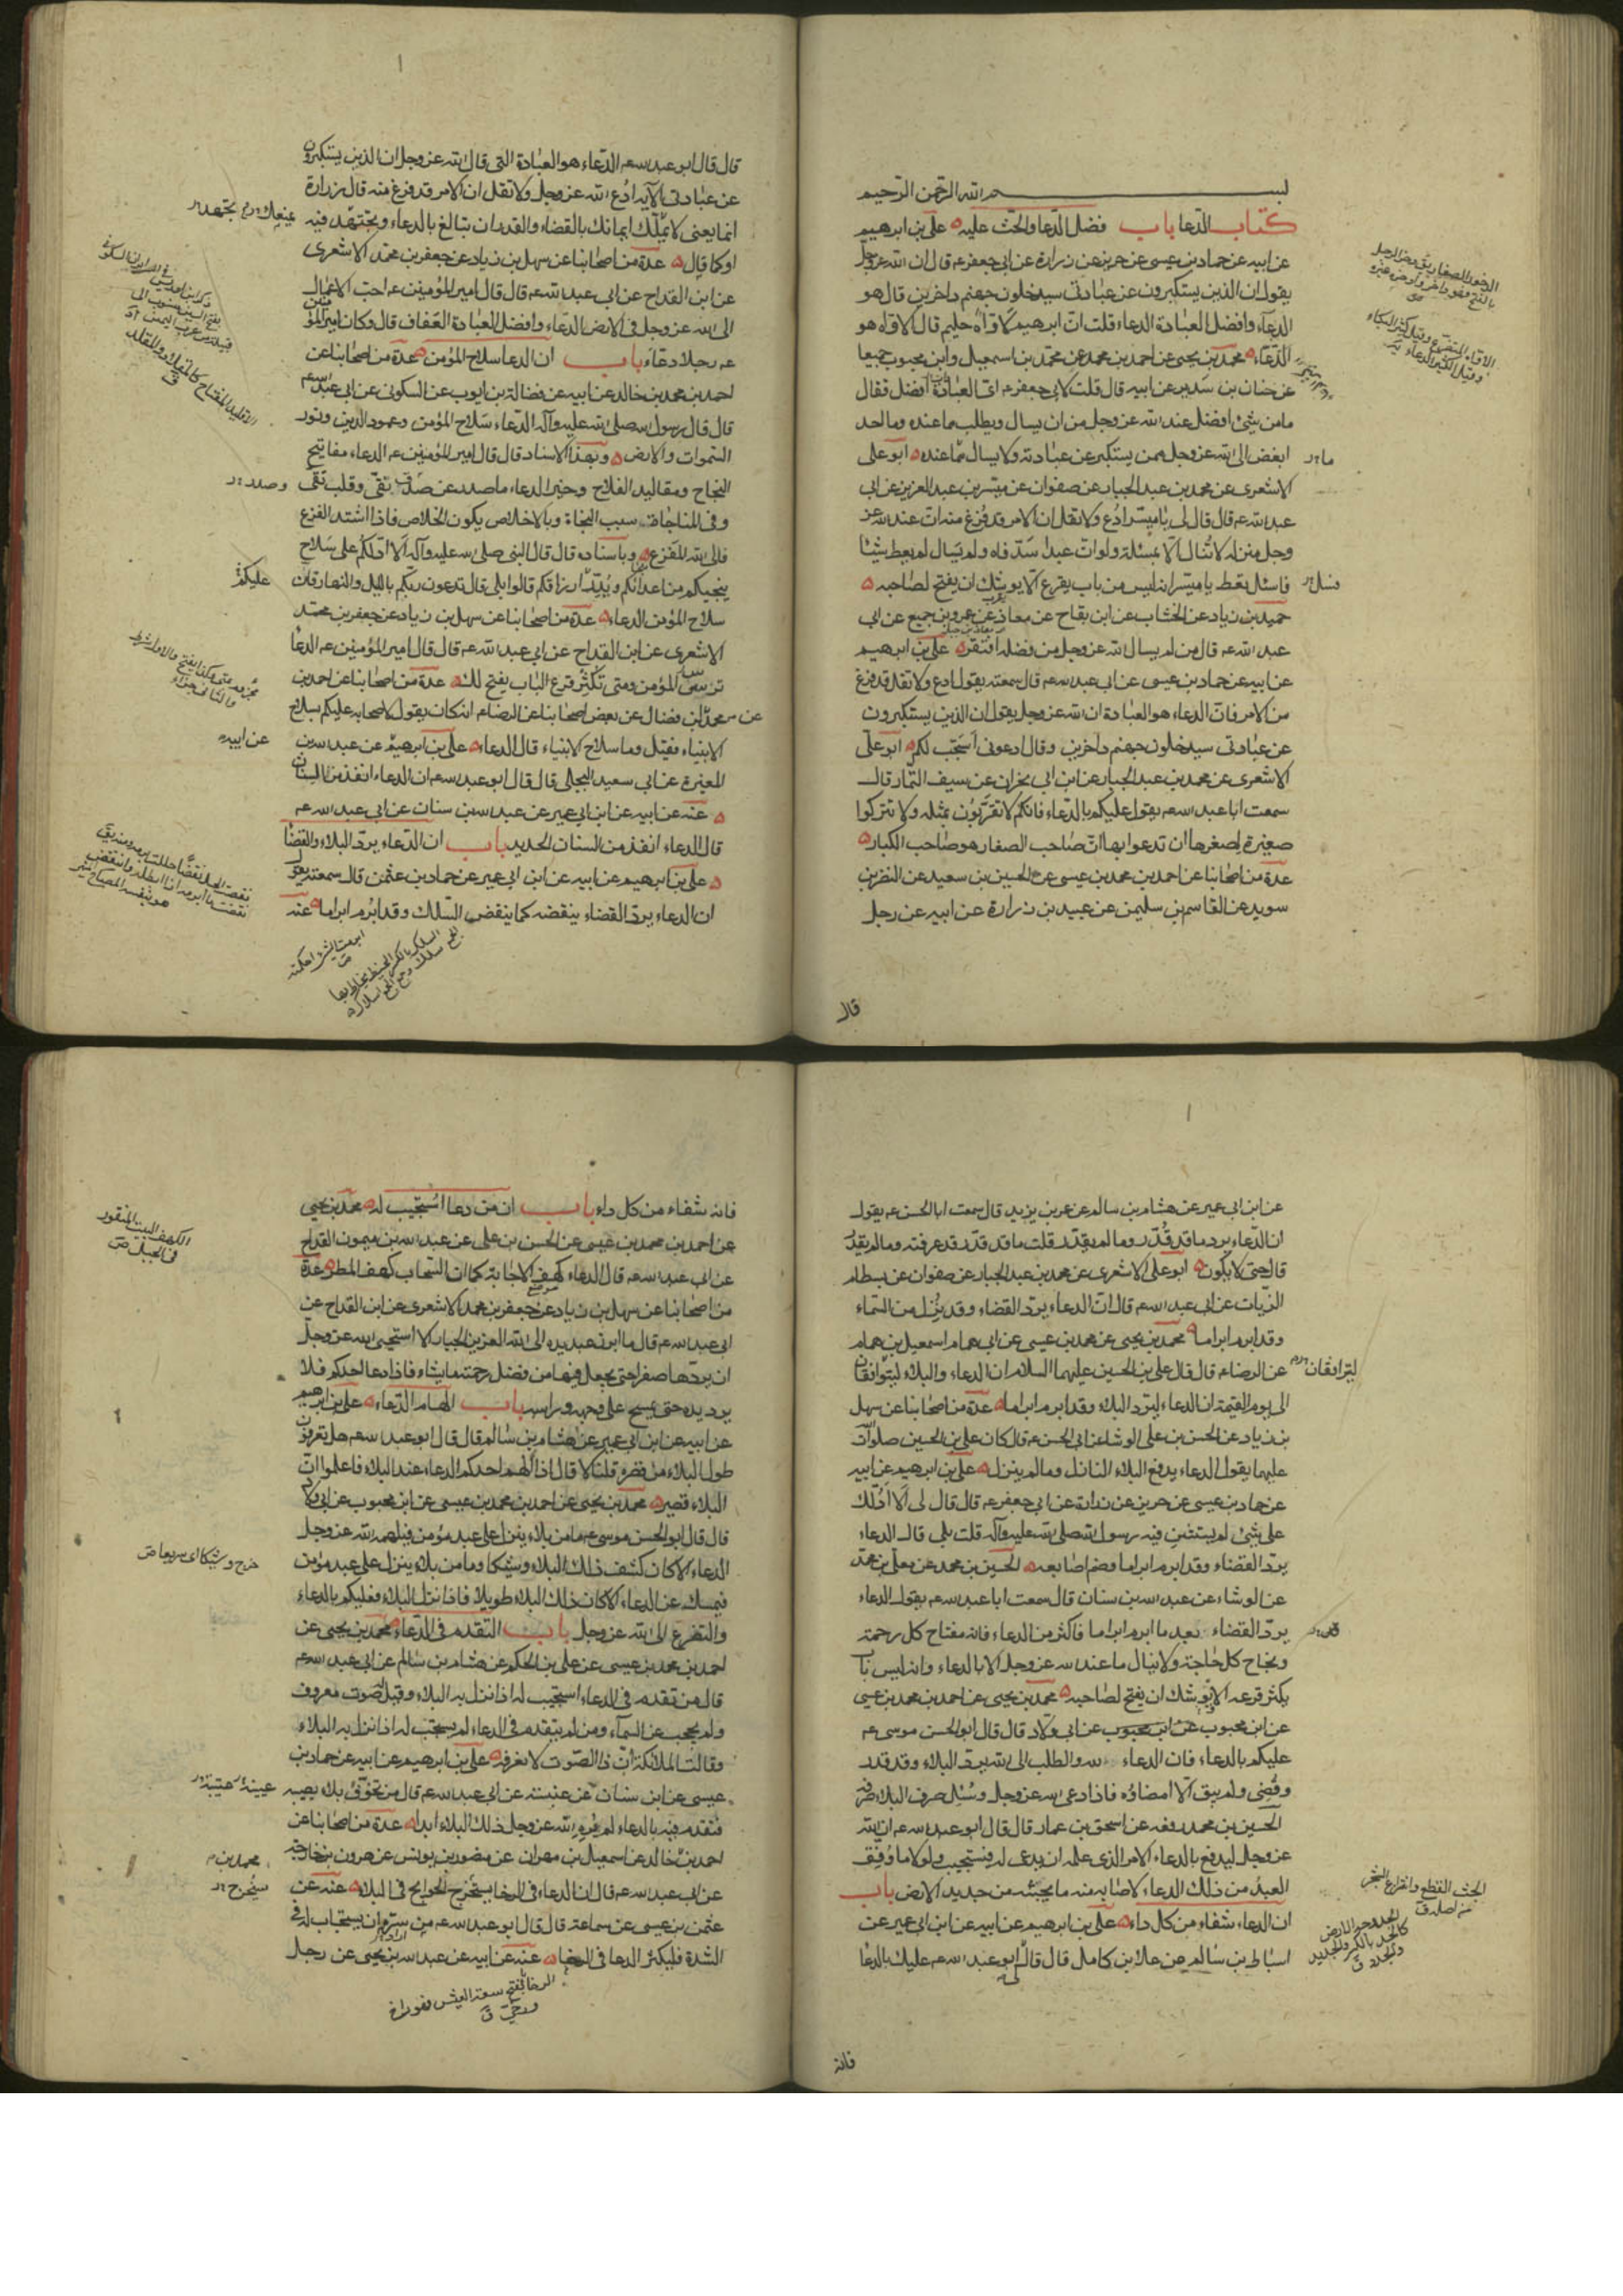 بسم الله الرحمن الرحيم
كتاب الدعا باب فضل الدعا والحث عليه ه علي بن ابرهيم
عن ابيه عن حماد بن عيسى عن حريز عن زرارة عن ابي جعفر عه قال ان الله عز وجل
يقول ان الذين يستكبرون عن عبادتي سيدخلون جهنم داخرين قال هو
الدعاء وافضل العبادة الدعاء قلت ان ابرهيم لاواه حليم قال الاواه هو
الدعاء ه محمد بن يحيى عن احمد بن محمد عن محمد بن اسمعيل وابن محبوب جميعا
عن حنان بن سدير عن ابيه قال قلت لابي جعفر عه اي العبادة افضل فقال
ما من شئ افضل عند الله عز وجل من ان يسال ويطلب مما عنده وما احد
ابغض الى الله عز وجل ممن يستكبر عن عبادته ولا يسال مما عنده ه ابو علي
الاشعري عن محمد بن عبد الجبار عن صفوان عن ميسر بن عبد العزيز عن ابي
عبد الله عه قال قال لي يا ميسر ادع ولا تقل ان الامر قد فرغ منه ان عند الله عز
وجل منزلة لا تنال الا بمسئلة ولو ان عبدا سد فاه ولم يسال لم يعط شيئا
فاسئل تعط يا ميسر انه ليس من باب يقرع الا يوشك ان يفتح لصاحبه ه
حميد بن زياد عن الخشاب عن ابن بقاح عن معاذ عن عمرو بن جميع عن ابي
عبد الله عه قال من لم يسال الله عز وجل من فضله افتقر ه علي بن ابرهيم
عن ابيه عن حماد بن عيسى عن ابي عبد الله عه قال سمعته يقول ادع ولا تقل قد فرغ
من الامر فان الدعاء هو العبادة ان الله عز وجل يقول ان الذين يستكبرون
عن عبادتي سيدخلون جهنم داخرين وقال ادعوني استجب لكم ه ابو علي
الاشعري عن محمد بن عبد الجبار عن ابن ابي نجران عن سيف التمار قال
سمعت ابا عبد الله عه يقول عليكم بالدعاء فانكم لا تقربون بمثله ولا تتركوا
صغيرة لصغرها ان تدعوا بها ان صاحب الصغار هو صاحب الكبار ه
عدة من اصحابنا عن احمد بن محمد بن عيسى عن الحسين بن سعيد عن النضر بن
سويد عن القاسم بن سليمن عن عبيد بن زرارة عن ابيه عن رجل
قال
قال قال ابو عبد الله عه الدعاء هو العبادة التي قال الله عز وجل ان الذين يستكبرون
عن عبادتي الآية ادع الله عز وجل ولا تقل ان الامر قد فرغ منه قال زرارة
انما يعني لا يملك ايمانك بالقضاء والقدر ان تبالغ بالدعاء وتجتهد فيه
او كما قال ه عدة من اصحابنا عن سهل بن زياد عن جعفر بن محمد الاشعري
عن ابن القداح عن ابي عبد الله عه قال قال امير المؤمنين عه احب الاعمال
الى الله عز وجل في الارض الدعاء وافضل العبادة العفاف قال وكان امير المؤمنين
عه رجلا دعاء باب ان الدعا سلاح المؤمن ه عدة من اصحابنا عن
احمد بن محمد بن خالد عن ابيه عن فضالة بن ايوب عن السكوني عن ابي عبد الله عه
قال قال رسول الله صلى الله عليه وآله الدعاء سلاح المؤمن وعمود الدين ونور
السموات والارض ه وبهذا الاسناد قال قال امير المؤمنين عه الدعاء مفاتيح
النجاح ومقاليد الفلاح وخير الدعاء ما صدر عن صدر نقي وقلب تقي
وفي المناجاة سبب النجاة وبالاخلاص يكون الخلاص فاذا اشتد الفزع
فالى الله المفزع ه وباسناده قال قال النبي صلى الله عليه وآله الا ادلكم على سلاح
ينجيكم من اعدائكم ويدر ارزاقكم قالوا بلى قال تدعون ربكم بالليل والنهار فان
سلاح المؤمن الدعاء ه عدة من اصحابنا عن سهل بن زياد عن جعفر بن محمد
الاشعري عن ابن القداح عن ابي عبد الله عه قال قال امير المؤمنين عه الدعا
ترس المؤمن ومتى تكثر قرع الباب يفتح لك ه عدة من اصحابنا عن احمد بن
محمد عن ابن فضال عن بعض اصحابنا عن الرضا عه انه كان يقول لاصحابه عليكم بسلاح
الانبياء فقيل وما سلاح الانبياء قال الدعاء ه علي بن ابرهيم عن عبد الله بن
المغيرة عن ابي سعيد البجلي قال قال ابو عبد الله عه ان الدعاء انفذ من السنان
ه عنه عن ابيه عن ابن ابي عمير عن عبد الله بن سنان عن ابي عبد الله عه
قال الدعاء انفذ من السنان الحديد باب ان الدعاء يرد البلاء والقضا
ه علي بن ابرهيم عن ابيه عن ابن ابي عمير عن حماد بن عثمن قال سمعته يقول
ان الدعاء يرد القضاء ينقضه كما ينقض السلك وقد ابرم ابراما ه عنه
عليكم
عن ابيه
عن ابن ابي عمير عن هشام بن سالم عن عمر بن يزيد قال سمعت ابا الحسن عه يقول
ان الدعاء يرد ما قد قدر وما لم يقدر قلت ما قد قدر قد عرفته وما لم يقدر
قال حتى لا يكون ه ابو علي الاشعري عن محمد بن عبد الجبار عن صفوان عن بسطام
الزيات عن ابي عبد الله عه قال ان الدعاء يرد القضاء وقد ينزل من السماء
وقد ابرم ابراما ه محمد بن يحيى عن محمد بن عيسى عن ابي همام اسمعيل بن همام
عن الرضا عه قال قال علي بن الحسين عليهما السلام ان الدعاء والبلاء ليتوافقان
الى يوم القيمة ان الدعاء ليرد البلاء وقد ابرم ابراما ه عدة من اصحابنا عن سهل
بن زياد عن الحسن بن علي الوشا عن ابي الحسن عه قال كان علي بن الحسين صلوات
عليهما يقول الدعاء يدفع البلاء النازل وما لم ينزل ه علي بن ابرهيم عن ابيه
عن حماد بن عيسى عن حريز عن زرارة عن ابي جعفر عه قال قال لي الا ادلك
على شئ لم يستثن فيه رسول الله صلى الله عليه وآله قلت بلى قال الدعاء
يرد القضاء وقد ابرم ابراما وضم اصابعه ه الحسين بن محمد عن معلى بن محمد
عن الوشاء عن عبد الله بن سنان قال سمعت ابا عبد الله عه يقول الدعاء
يرد القضاء بعد ما ابرم ابراما فاكثر من الدعاء فانه مفتاح كل رحمة
ونجاح كل حاجة ولا ينال ما عند الله عز وجل الا بالدعاء وانه ليس باب
يكثر قرعه الا يوشك ان يفتح لصاحبه ه محمد بن يحيى عن احمد بن محمد بن عيسى
عن ابن محبوب عن ابي ولاد قال قال ابو الحسن موسى عه
عليكم بالدعاء فان الدعاء لله والطلب الى الله يرد البلاء وقد قدر
وقضي ولم يبق الا امضاؤه فاذا دعي الله عز وجل وسئل صرف البلاء صرفه
الحسين بن محمد رفعه عن اسحق بن عمار قال قال ابو عبد الله عه ان الله
عز وجل ليدفع بالدعاء الامر الذي علمه ان يدعى له فيستجيب ولولا ما وفق
العبد من ذلك الدعاء لاصابه منه ما يجثه من جديد الارض باب
ان الدعاء شفاء من كل داء ه علي بن ابرهيم عن ابيه عن ابن ابي عمير عن
اسباط بن سالم عن علا بن كامل قال قال لي ابو عبد الله عه عليك بالدعا
فانه
فانه شفاء من كل داء باب ان من دعا استجيب له ه محمد بن يحيى
عن احمد بن محمد بن عيسى عن الحسن بن علي عن عبد الله بن ميمون القداح
عن ابي عبد الله عه قال الدعاء كهف الاجابة كما ان السحاب كهف المطر ه عدة
من اصحابنا عن سهل بن زياد عن جعفر بن محمد الاشعري عن ابن القداح عن
ابي عبد الله عه قال ما ابرز عبد يده الى الله العزيز الجبار الا استحيى الله عز وجل
ان يردها صفرا حتى يجعل فيها من فضل رحمته ما يشاء فاذا دعا احدكم فلا
يرد يده حتى يمسح على وجهه وراسه باب الهام الدعاء ه علي بن ابرهيم
عن ابيه عن ابن ابي عمير عن هشام بن سالم قال قال ابو عبد الله عه هل تعرفون
طول البلاء من قصره قلنا لا قال اذا الهم احدكم الدعاء عند البلاء فاعلموا ان
البلاء قصير ه محمد بن يحيى عن احمد بن محمد بن عيسى عن ابن محبوب عن ابي ولاد
قال قال ابو الحسن موسى عه ما من بلاء ينزل على عبد مؤمن فيلهمه الله عز وجل
الدعاء الا كان كشف ذلك البلاء وشيكا وما من بلاء ينزل على عبد مؤمن
فيمسك عن الدعاء الا كان ذلك البلاء طويلا فاذا نزل البلاء فعليكم بالدعاء
والتضرع الى الله عز وجل باب التقدم في الدعاء ه محمد بن يحيى عن
احمد بن محمد بن عيسى عن علي بن الحكم عن هشام بن سالم عن ابي عبد الله عه
قال من تقدم في الدعاء استجيب له اذا نزل به البلاء وقيل صوت معروف
ولم يحجب عن السماء ومن لم يتقدم في الدعاء لم يستجب له اذا نزل به البلاء
وقالت الملائكة ان ذا الصوت لا نعرفه ه علي بن ابرهيم عن ابيه عن حماد بن
عيسى عن ابن سنان عن عنبسة عن ابي عبد الله عه قال من تخوف بلاء يصيبه
فتقدم فيه بالدعاء لم يره الله عز وجل ذلك البلاء ابدا ه عدة من اصحابنا عن
احمد بن خالد عن اسمعيل بن مهران عن منصور بن يونس عن هرون بن خارجة
عن ابي عبد الله عه قال ان الدعاء في الرخا يستخرج الحوايج في البلاء ه عنه عن
عثمن بن عيسى عن سماعة قال قال ابو عبد الله عه من سره ان يستجاب له في
الشدة فليكثر الدعا في الرخا ه عنه عن ابيه عن عبد الله بن يحيى عن رجل
الكهف البيت المنقور
في الجبل ص